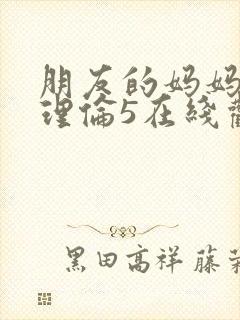 朋友的妈妈
理倫5在线
黑田高祥 藤